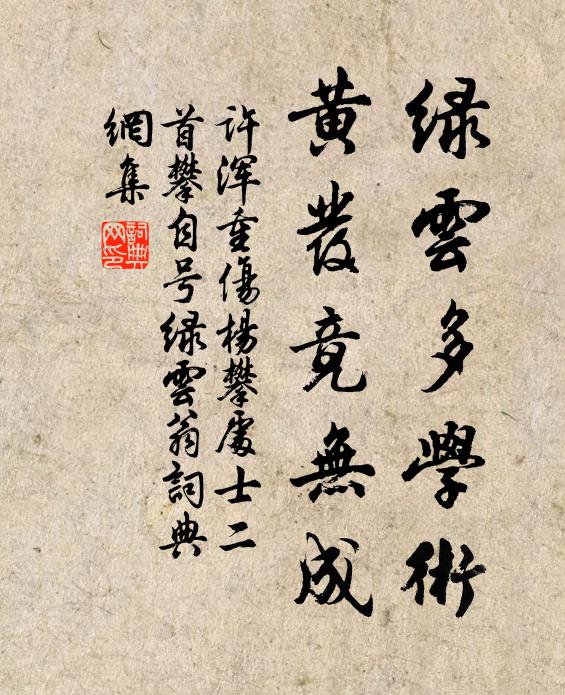 綠雲多學術
黃發竟無成
許渾重傷楊攀處士二
首攀自号綠雲翁詞典
網集
詞典
网印